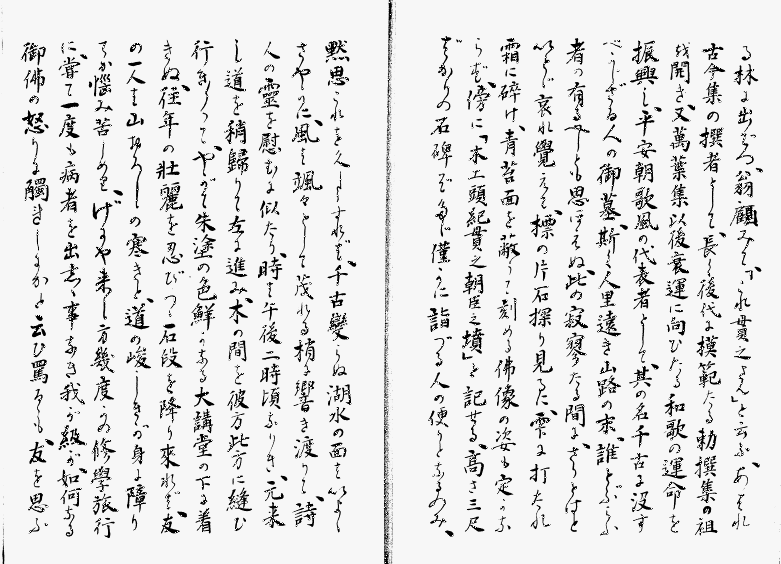 る林に出でつ、翁顧みて、「これ貫之さん」と云ふ、あはれ
古今集の撰者として、長く後代に模範たる勅撰集の祖
を開き、又萬葉集以後衰運に向ひたる和歌の運命を
振興し、平安朝歌風の代表者として、其の名千古に没す
べからざる人の御墓、斯く人里遠き山路の末、誰とぶらふ
者の有るやとも思ほえぬ、此の寂寥たる間にさらむとは
いとど哀れ覺えて、標の片石探り見るに、雫に打たれ
霜に砕け、青苔面を蔽うて刻める佛像の姿も定かなら
らず、傍に「木工頭紀貫之朝臣之墳」と記せる、高さ三尺
ばかりの石碑ぞ、僅かに詣づる人の便りとなるのみ、
黙思これを久しうすれば、千古變らぬ湖水の面も、いとし
さやかに、風も颯々として茂れる梢に響き渡りて、詩
人の靈を慰むるに似たり、時に午後二時頃なりき、元来
し道を稍歸りて左に進み、木の間を彼方此方に縫ひ
行きて、やがて朱塗の色鮮かなる大講堂の下に着
きぬ、往年の壮麗を忍びつゝ石段を降り來れば、友
の一人は山おろしの寒きと、道の峻しきが身に障り
てか悩み苦しめり、げにや来し方幾度かの修學旅行
に、嘗て一度も病者を出しゝ事なき我が級が、如何なる
御佛の怒りに觸れしかと云ひ罵るも、友を思ふ